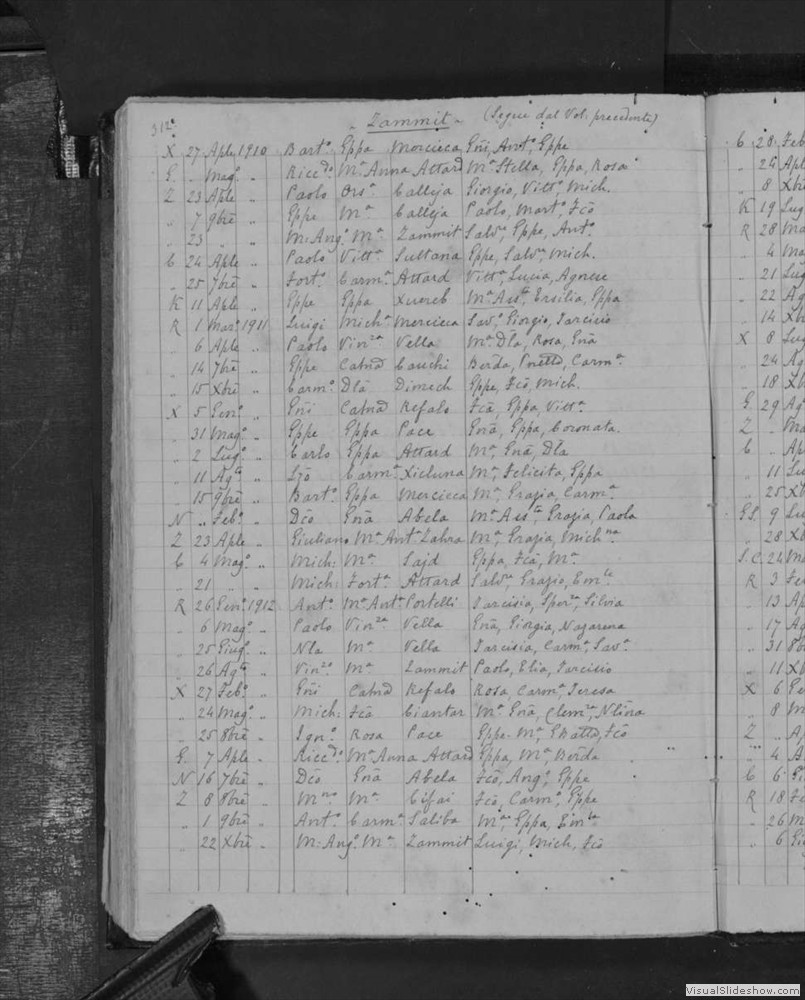 312.
Zammit (Segue dal Vol. precedente)
X 27 Aple 1910 Bart.º Eppa Mercieca Gñi, Ant.º Eppe
G „ Mag.º „ Ricc.dº M.ª Anna Attard M.ª Stella, Eppa, Rosa
Z 23 Aple „ Paolo Ors.ª Calleja Giorgio, Vitt.º Mich.
„ 7 9bre „ Eppe M.ª Calleja Paolo, Mart.º, Fcõ
„ 23 „ „ M. Ang.º M.ª Zammit Salv.ª, Eppe, Ant.º
C 24 Aple „ Paolo Vitt.ª Sultana Eppe, Salv.ª, Mich.
„ 25 7bre „ Fort.º Carm.ª Attard Vitt.ª, Lucia, Agnese
K 11 Aple „ Eppe Eppa Xuereb M.ª Ass.ta, Ersilia, Eppa
R 1 Mar.º 1911 Luigi Mich.ª Mercieca Sav.º, Giorgio, Tarcisio
„ 6 Aple „ Paolo Vin.za Vella M.ª Dla, Rosa, Gñã
„ 14 7bre „ Eppe Catnã Cauchi Berda, Carm.ª
„ 15 Xbre „ Carm.º Dlã Dimech Eppe, Fcõ, Mich.
X 5 Gen.º „ Gñi Catnã Refalo Fcã, Eppa, Vitt.ª
„ 31 Mag.º „ Eppe Eppa Pace Gñã, Eppa, Coronata.
„ 2 Lug.º „ Carlo Eppa Attard M.ª, Gñã, Dla
„ 11 Ag.to „ Lzõ Carm.ª Xicluna M.ª, Felicita, Eppa
„ 15 9bre „ Bart.º Eppa Mercieca M.ª, Grazia, Carm.ª
N „ Feb.º „ Dcõ Gñã Abela M.ª Ass.ta, Grazia, Paola
Z 23 Aple „ Giuliano M.ª Ant.ª Zahra M.ª, Grazia, Mich.na
C 4 Mag.º „ Mich: M.ª Sajd Eppa, Fcã, M.ª
„ 21 „ „ Mich: Fort.ª Attard Salv.ª, Grazio, Em.le
R 26 Gen.º 1912 Ant.º M.ª Ant.ª Portelli Tarcisia, Sper.za, Silvia
„ 6 Mag.º „ Paolo Vin.za Vella Gñã, Giorgia, Nazarena
„ 25 Giug.º „ Nla M.ª Vella Tarcisia, Carm.ª, Sav.ª
„ 26 Ag.to „ Vin.zo M.ª Zammit Paolo, Elia, Tarcisio
X 27 Feb.º „ Gñi Catnã Refalo Rosa, Carm.ª, Teresa
„ 24 Mag.º „ Mich: Fcã Ciantar M.ª Gñã, Clem.za,
„ 25 8bre „ Ign.º Rosa Pace Eppe M.ª, Fcõ
G. 7 Aple „ Ricc.dº M.ª Anna Attard Eppa, M.ª, Berda
N 16 7bre „ Dcõ Gñã Abela Fcõ, Ang.º, Eppe
Z 8 8bre „ M.no M.ª Cifai Fcõ, Carm.º, Eppe
„ 1 9bre „ Ant.º Carm.ª Saliba M.ª, Eppa, Em.la
„ 22 Xbre „ M. Ang.º M.ª Zammit Luigi, Mich, Fcõ
C 28 Feb
„ 26 Apl
„ 8 Xbr
K 19 Lug
R 28 Ma
„ 4 Ma
„ 21 Lug
„ 22 Ag
„ 14 Xb
X 8 Lug
„ 24 Ag
„ 18 Xb
G. 29 Ag
Z „ Ma
C „ Apl
„ 11 Lu
„ 25 Xb
G.S. 9 Lu
„ 28 Xb
S.C. 24 Ma
R 3 Fe
„ 13 Ap
„ 17 Ag
„ 31 8b
„ 11 Xb
X 6 Ge
„ 8 M
Z „ Ap
„ 4 A
C 6 G
R 18 Fe
„ 26 M
„ 6 Gi
VisualSlideshow.com